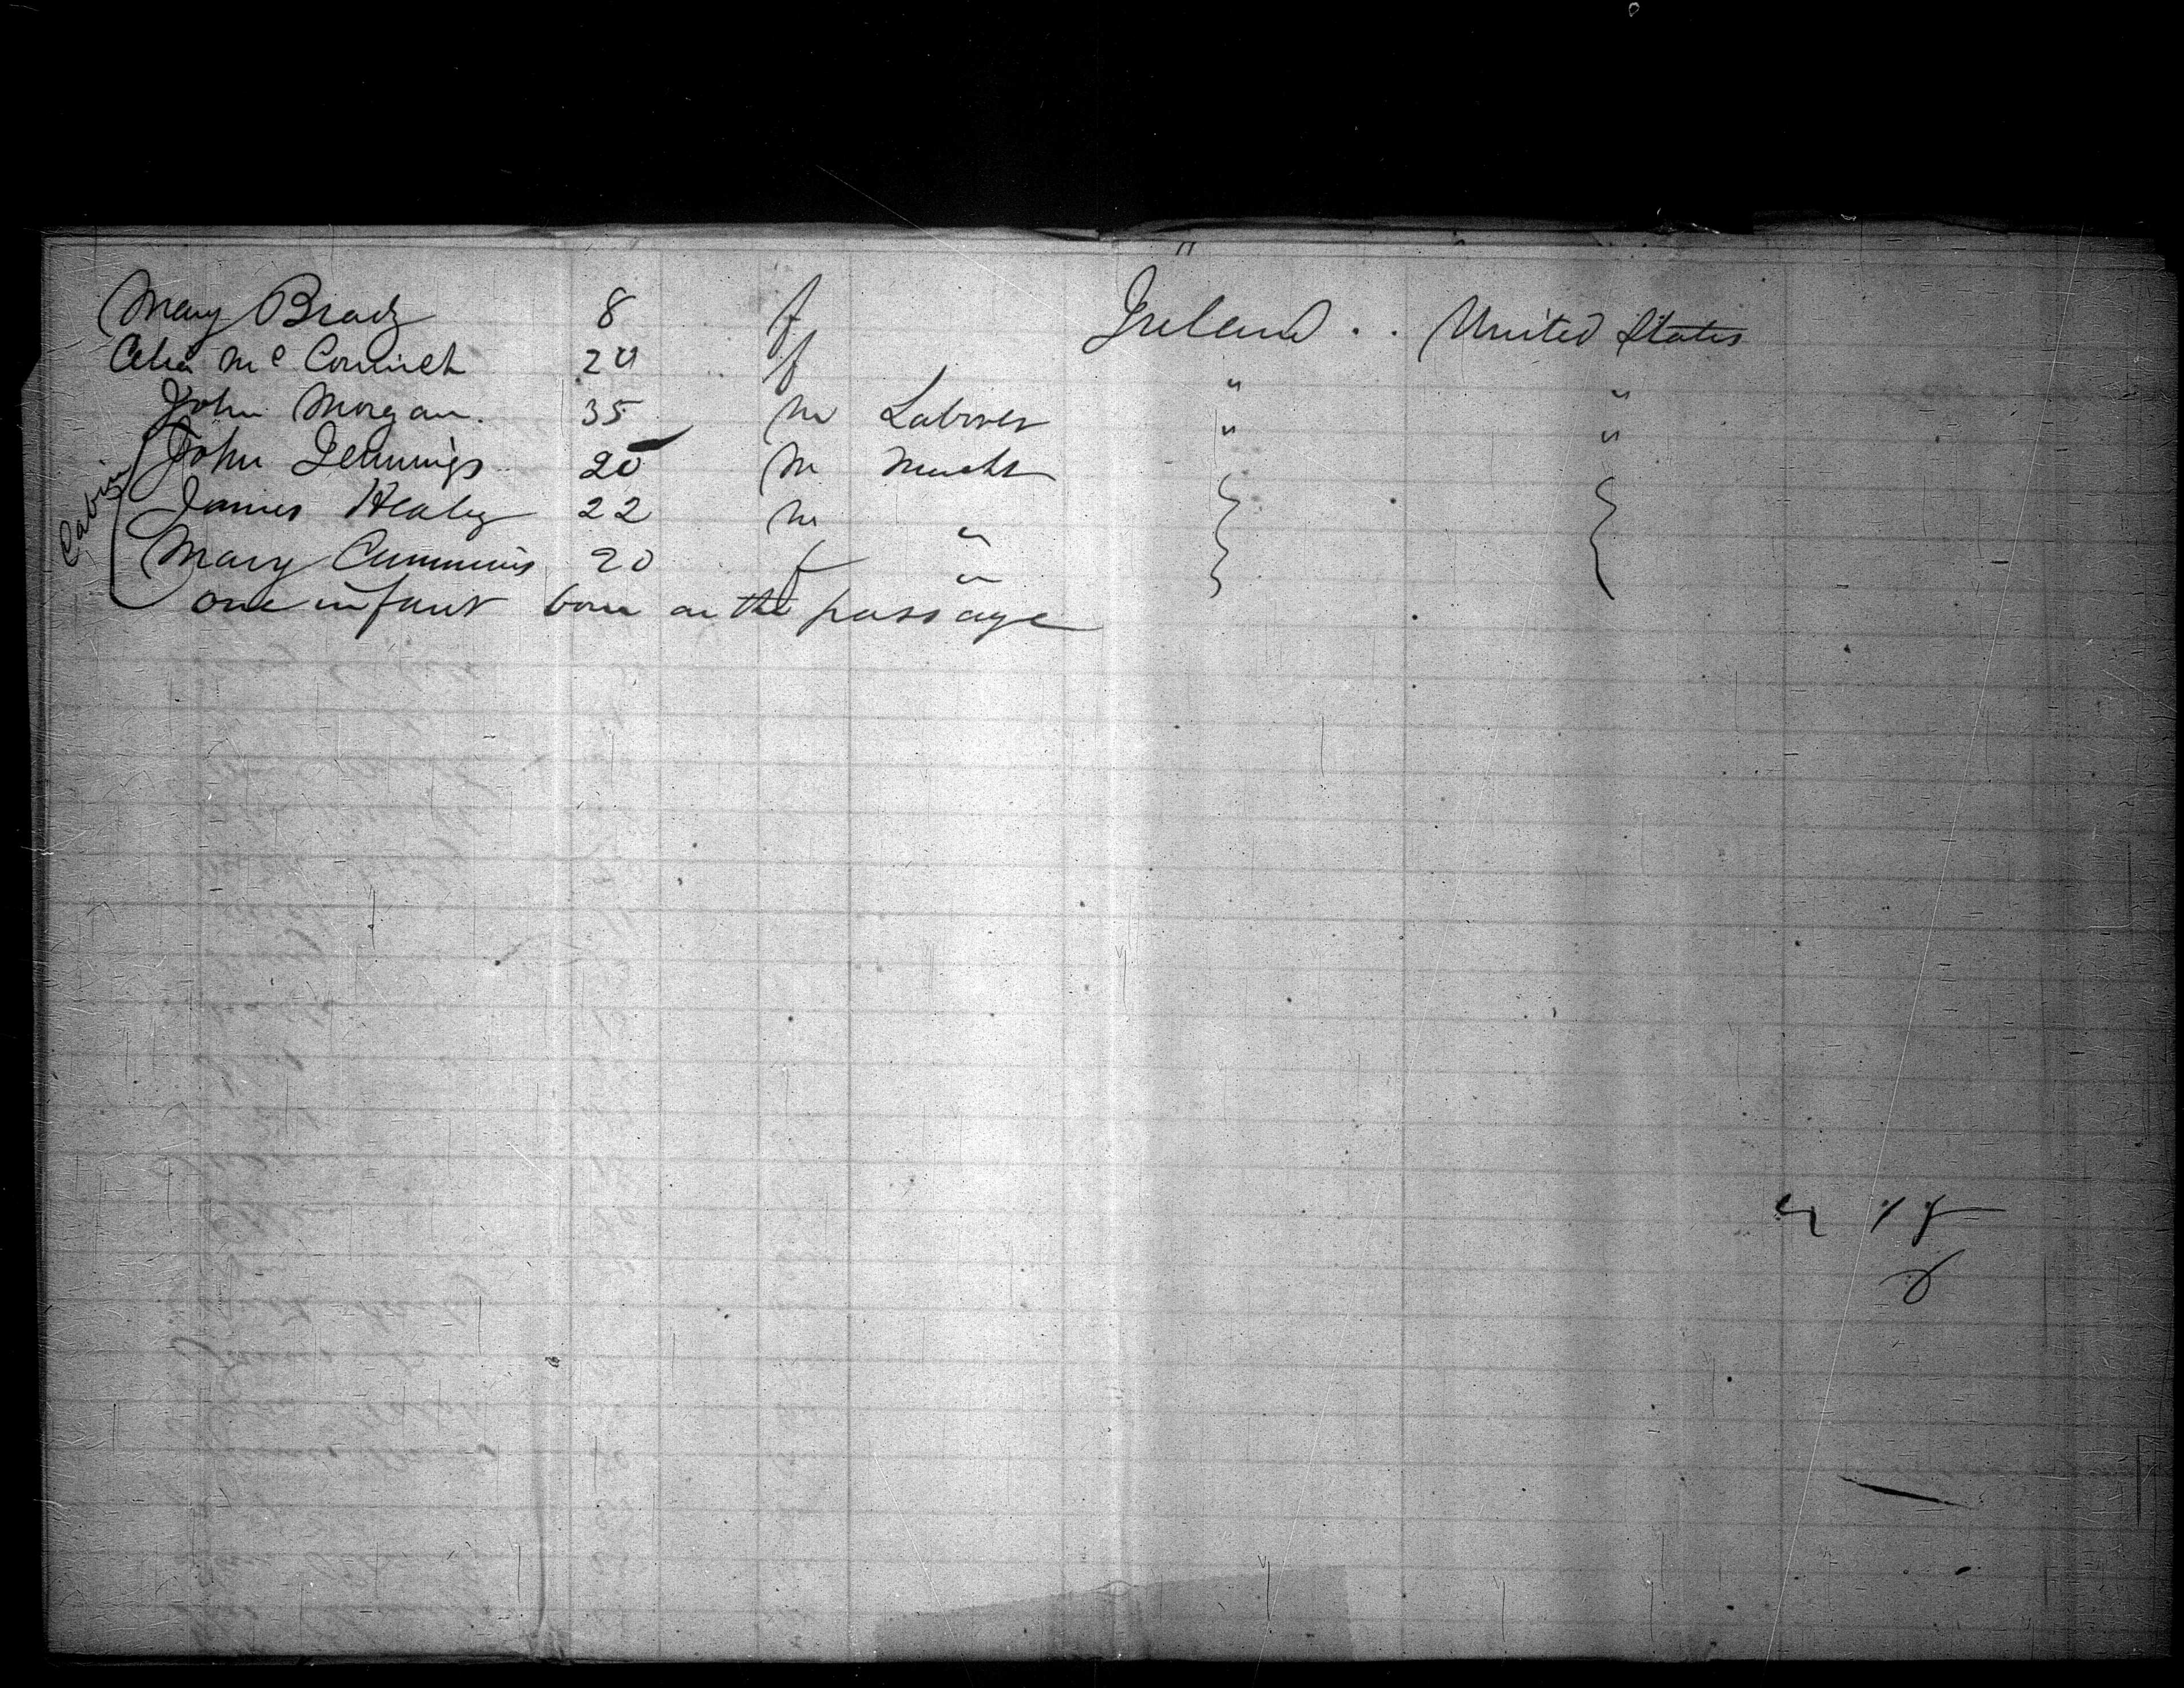 Mary Brady 8 f Ireland . . United States
Celia Mc Cormick 20 f " "
John Morgan. 35 m Laborer " "
Cabin John Jennings 20 m Mercht
James Healey 22 m "
Mary Cummins 20 f "
one infant born on the passage